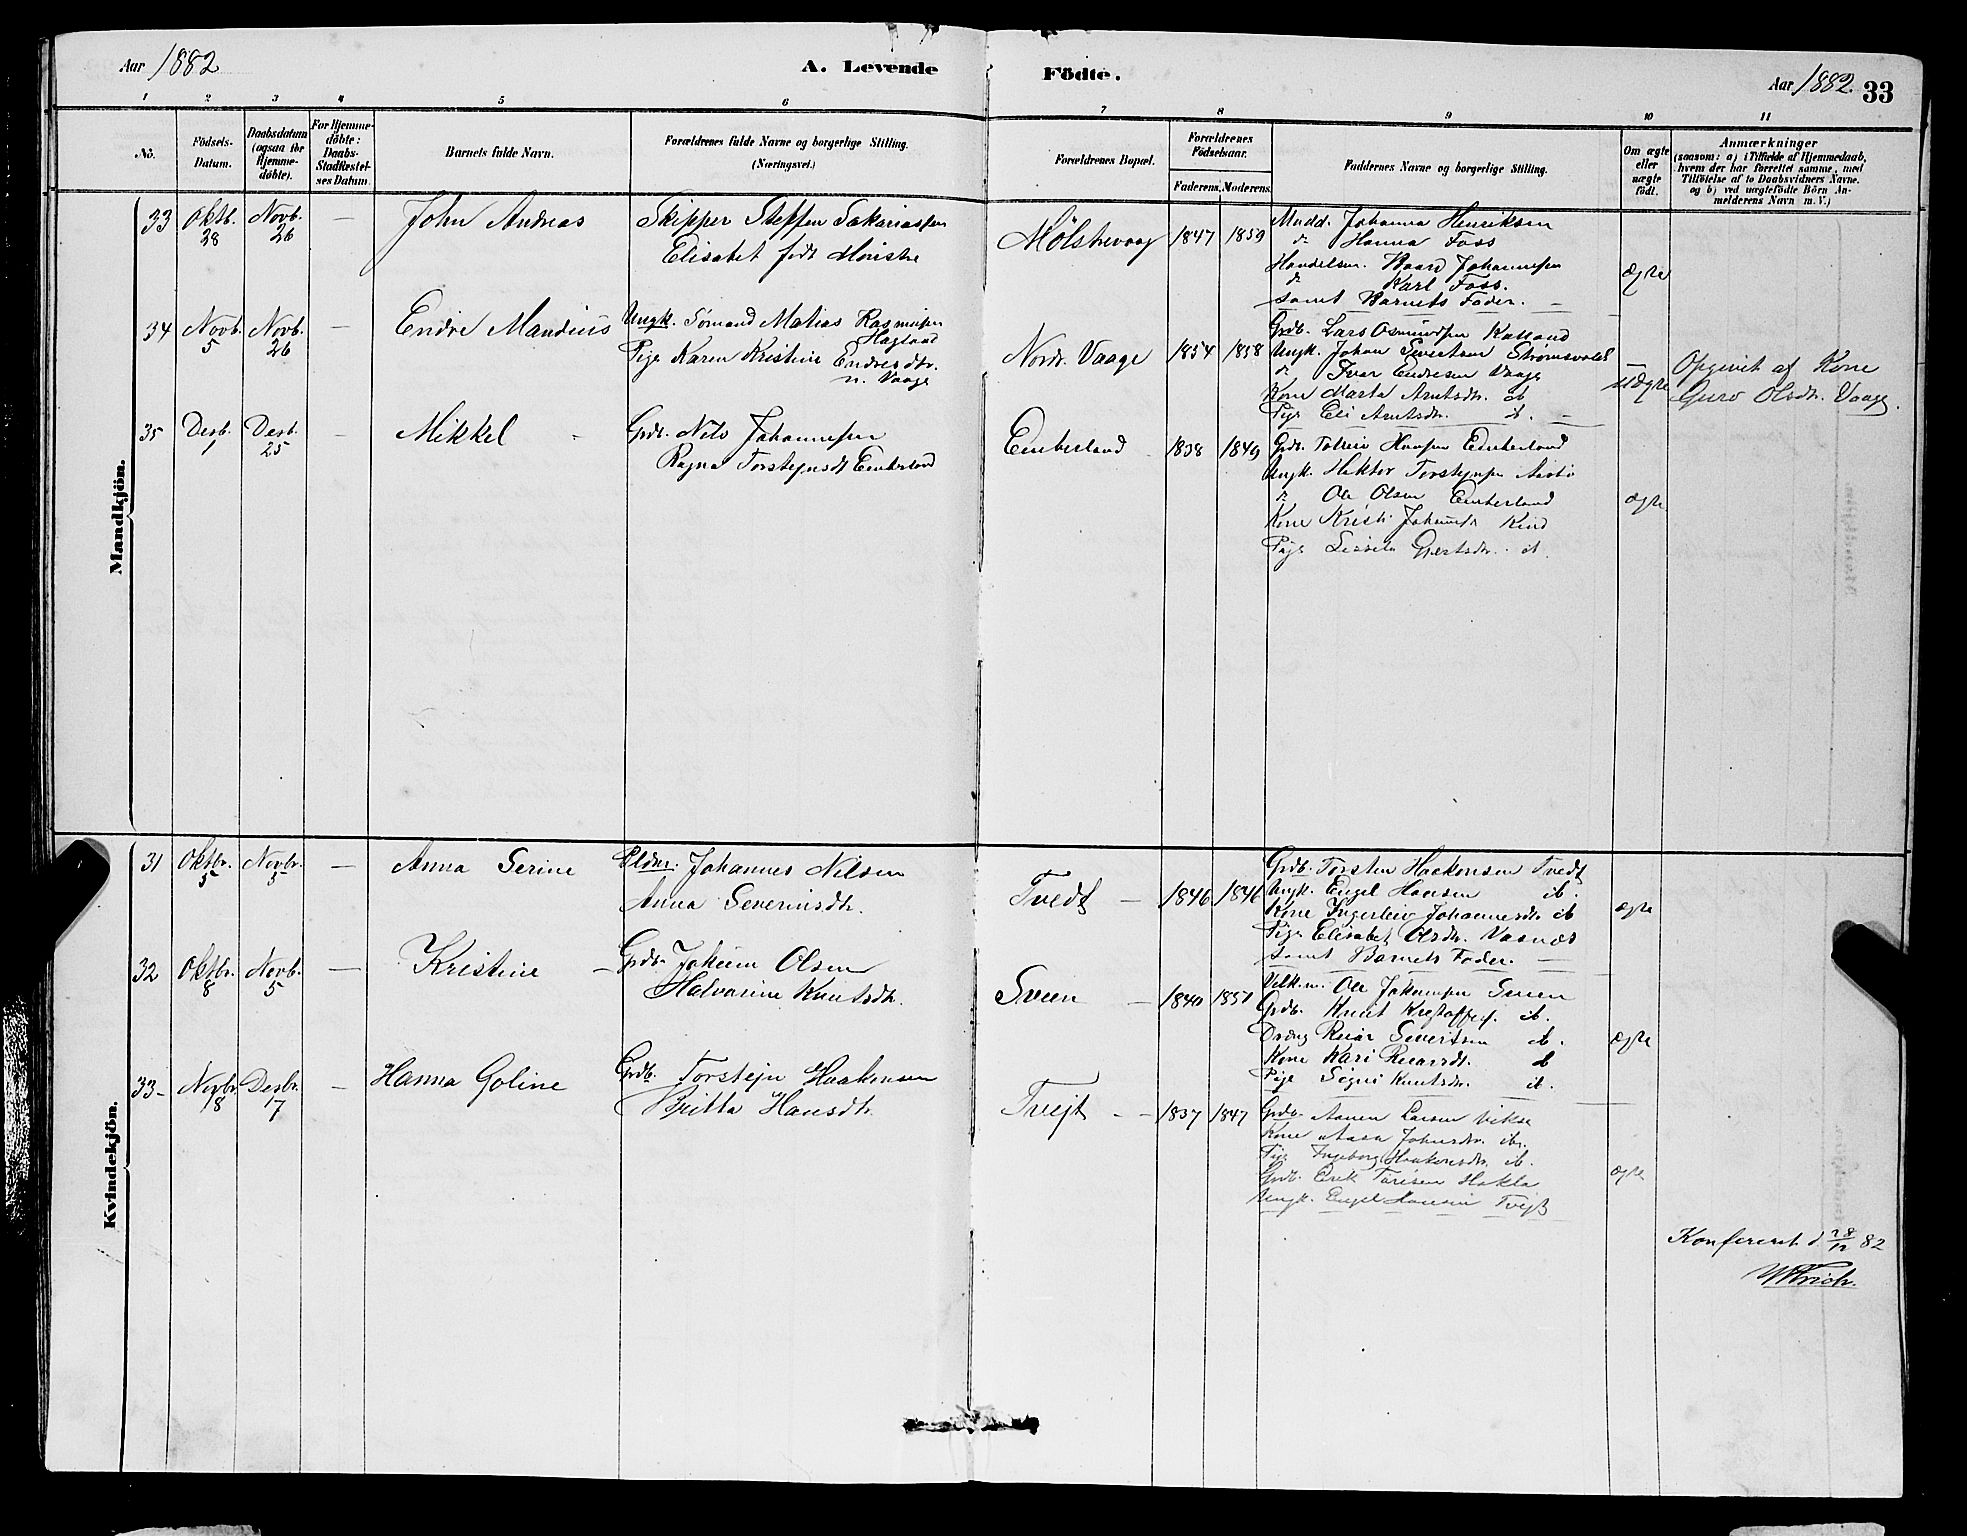 Aar 1882
A. Levende Födte.
Aar 1882. 33
1 2 3 4 5 6 7 8 9 10 11
No.
Födsels-Datum.
Daabsdatum (ogsaa for Hjemme-døbte).
For Hjemme-døbte: Daabs-Stadfæstel-ses Datum.
Barnets fulde Navn.
Forældrenes fulde Navne og borgerlige Stilling.
(Næringsvei.)
Forældrenes Bopæl.
Forældrenes Födselsaar.
Faderens. Moderens.
Faddernes Navne og borgerlige Stilling.
Om ægte eller uægte födt.
Anmærkninger
(saasom: a) i Tilfælde af Hjemmedaab,
hvem der har forrettet samme, med
Tilföielse af to Daabsvidners Navne.
og b) ved uægtefödte Börn An-
melderens Navn m. V.)
Mandkjön.
33 Oktb. 28 Novb. 26 — John Andreas
Skipper Steffen Sakariassen
Elisabet født
Mølstrevaag 1847 1859
Madd. Johanna Henriksen
d Hanna Foss
Handelsm. Baard Johannessen
d Karl Foss.
samt Barnets Fader. —
ægte
34 Novb. 5 Novb. 26 — Endre Mandius
Ungk. Sømand Matias Rasmusen
Hagland
Pige Karen Kristine Endresdtr.
n. Vaage
Nordr. Vaage 1854 1858
Grdb. Lars Osmundsen Kalland
Ungk. Johan Sivertsen
d Ivar Endresen Vaage
Kone Marta Arntsdr. ib
Pige Eli Arntsdr. ib. —
uægte
Opgivet af Kone
Guro Olsdtr. Vaage.
35 Desb. 1 Desb. 25 — Mikkel
Grdb. Nils Johannessen
Ragna Torstejnsdt Emberland
Emberland 1838 1849
Grdb. Hansen Emberland
Ungk. Torstejnsen
d Ole Olsen Emberland
Kone Kristi
Pige ib.
ægte
Kvindekjön.
31 Oktbr. 5 Novbr. 5 — Anna Serine
Johannes Nilsen
Anna Severinsdtr.
Tvedt — 1846 1846
Grdb. Torsten Haakonsen Tvedt
Ungk. Engel Hansen ib.
Kone Ingerleiv Johannesdtr. ib
Pige Elisabet Olsdtr.
samt Barnets Fader. —
ægte
32 Oktbr. 8 Novb. 5 — Kristine —
Grdb. Jokum Olsen
Halvarine Knutsdtr.
Sveen — 1840 1851
Ole Johannesen Sveen
Grdb. Knut ib.
Dreng Reiar Sivertsen ib.
Kone Kari Reiarsdt. ib
Pige Knutsdtr. ib.
ægte
33 — Novbr. 18 Desbr. 17 — Hanna Goline
Grdb. Torstejn Haakonsen
Britta Hansdtr.
Tvejt — 1837 1847
Grdb. Larsen Vikse
Kone Johnsdtr. ib.
Pige Ingeborg Haakonsdtr. ib.
Grdb. Erik Hakla
Ungk. Engel Hansen Tvejt
ægte
Konfereret d. 28/12 82